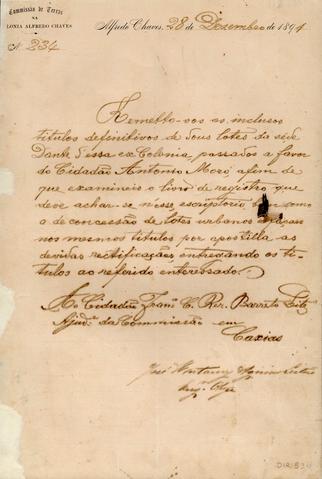 Commissão de Terras
NA
COLONIA ALFREDO CHAVES
N. 234
Alfredo Chaves, 28 de Dezembro de 1891
Remetto-vos os inclusos
titulos definitivos de dous lotes da séde
Dante d'essa ex Colonia, passados a favor
do Cidadão Antonio Moró afim de
que examineis o livro de registro que
deve achar-se nesse escriptorio como
a de concessão de lotes urbanos façaes
nos mesmos titulos por apostilla as
devidas rectificações entregando os ti-
tulos ao referido interessado.
Ao Cidadão Franco C. Per. Barreto
Ajude da Commissão em
Caxias
José Montaury
Engo Chefe